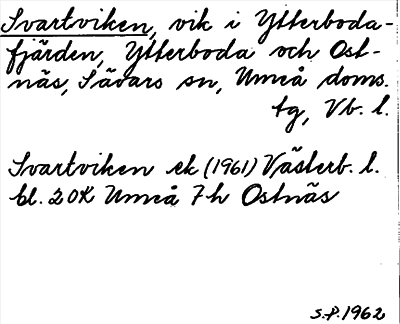 Svartviken, vik i Ytterboda-
fjärden, Ytterboda och Ost-
näs, Sävars sn, Umeå doms.
tg, Vb. l.
Svartviken ek (1961) Västerb. l.
bl. 20K Umeå 7h Ostnäs
S.P. 1962